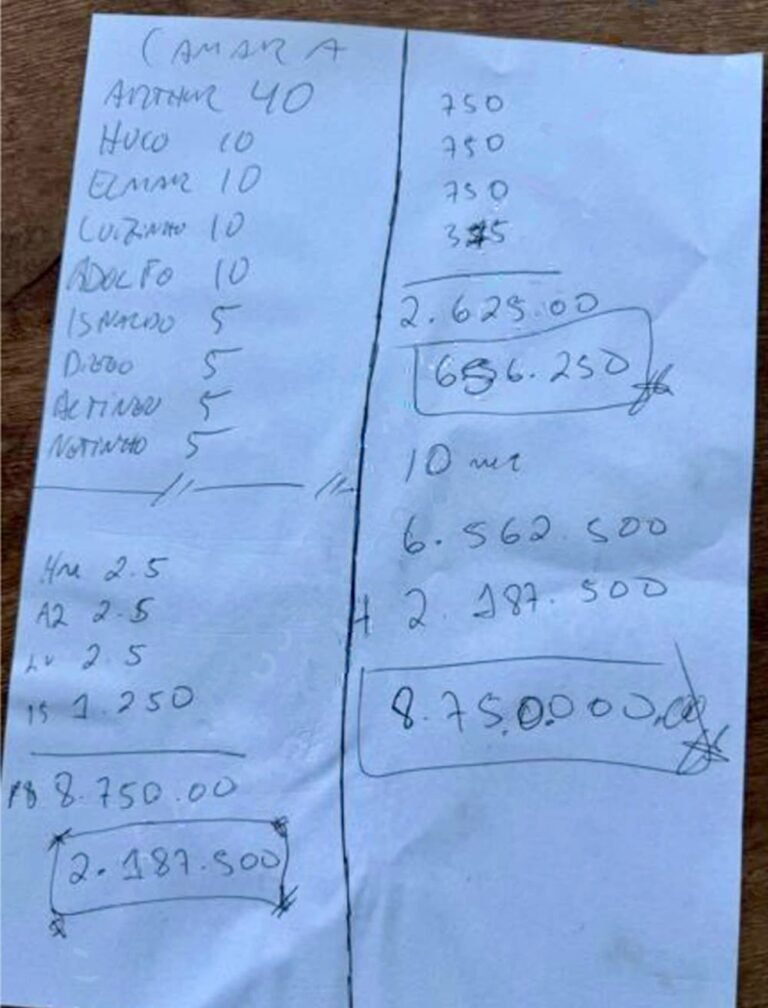 CAMARA
ARTHUR 40
HUGO 10
ELMAR 10
LUIZINHO 10
ADOLFO 10
ISNALDO 5
DIEGO 5
ALTINEU 5
NETINHO 5
2.5
A2 2.5
2.5
1.250
8.750.00
2.187.500
750
750
750
375
2.625.00
656.250
10
6.562.500
2.187.500
8.750.000,00